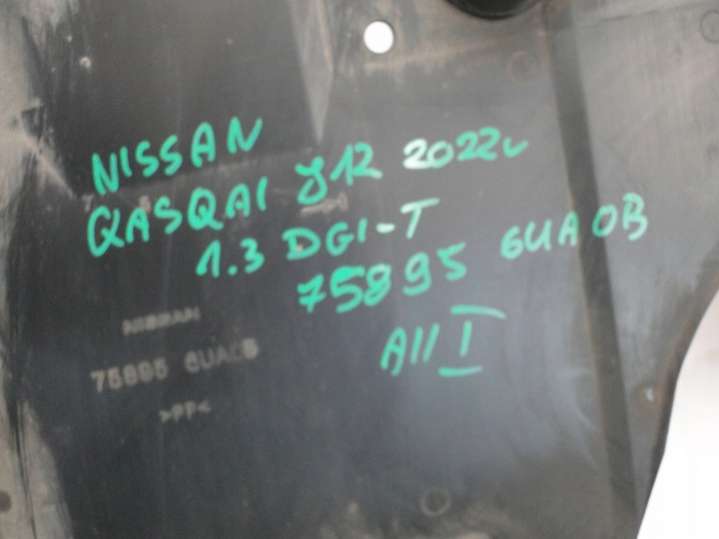 NISSAN
QASQAI J12 2022r
1.3 DGI-T
75895 6UA0B
A11 I
NISSAN
75895 6UA0B
>PP<